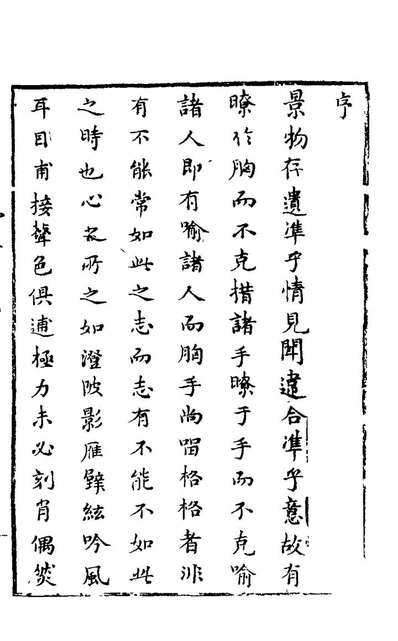 序
景物存遺準乎情見聞違合準乎意故有
瞭於胸而不克措諸手瞭于手而不克喻
諸人即有喻諸人而胸手尚畱格格者非
有不能常如此之志而志有不能不如此
之時也心妄所之如澄陂影雁騃絃吟風
耳目甫接聲色俱逋極力未必刻肖偶然